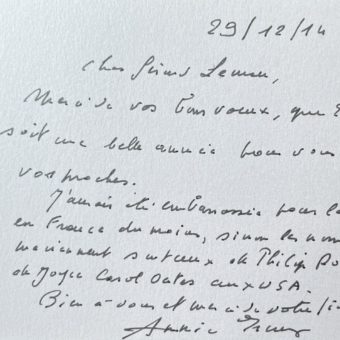 29/12/14
Cher Gérard Leman,
Merci de vos bons voeux, que
soit une belle année pour vous
vos proches.
J'aurais été embarrassée pour
en France du moins, sinon les
maintenant surtout de Philip
de Joyce Carol Oates aux USA.
Bien à vous et merci de votre
Annie